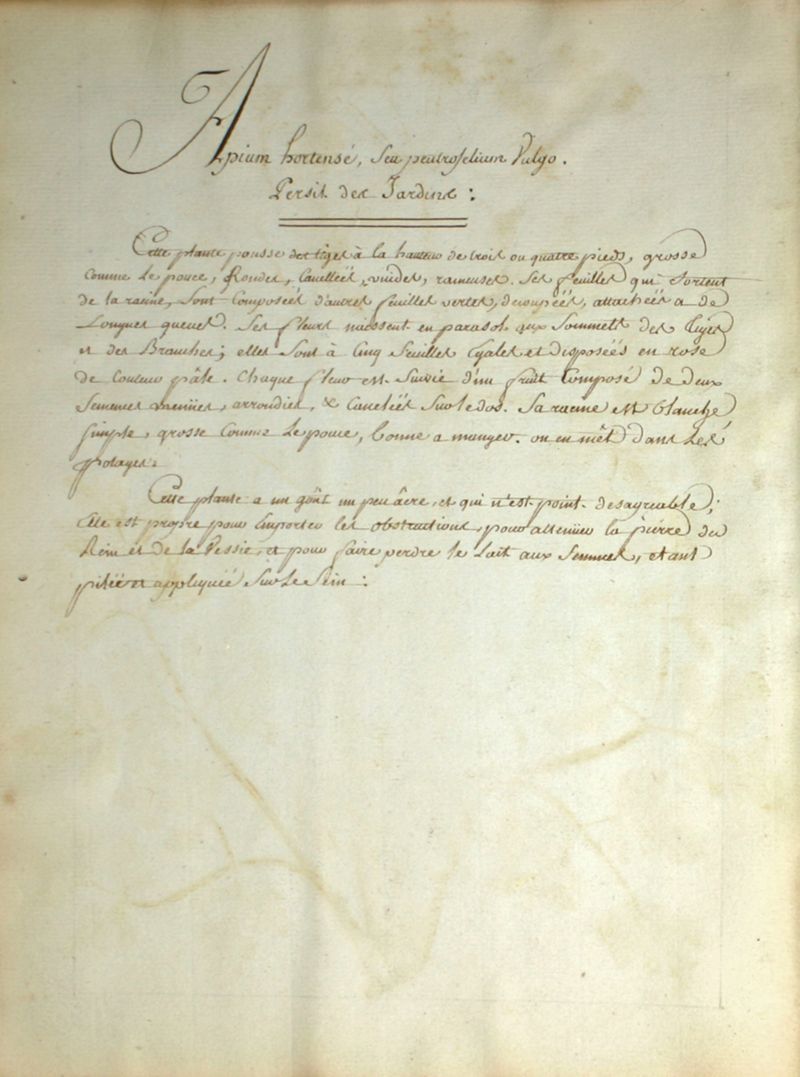 Apium hortensé, Seu peutroselium Vulgo.
Persil des Jardins :
Cette plante pousse des tiges à la hauteur de trois ou quatre pieds, grosse
comme le pouce, Rondes, Canelleés, vuides, rameuses. Ses feuilles qui Sortent
de la racine, Sont Composées d'autres feuilles vertes, decoupéés, attachéés a de
Longues queues. Ses fleurs naissent en parasol aux Sommets des Tiges
et des Branches; elles Sont à Cinq feuilles Egales et disposeés en rose
de Couleur pâle. Chaque fleur est Suivie d'un fruit Composé de deux
Semences menües, arrondies, & Caneleés Sur le dos. Sa racine est blanche
simple, grosse Comme Le pouce, bonne a manger. on en mêt dans Les
potages.
Cette plante a un goût un peu âcre, et qui n'est point desagreable,
Elle est propre pour Emporter les obstructions, pour attenüer la pierre du
Rein et de la Vessie, et pour faire perdre le Lait aux femmes, etant
pileé et appliqueé Sur Le Sein :